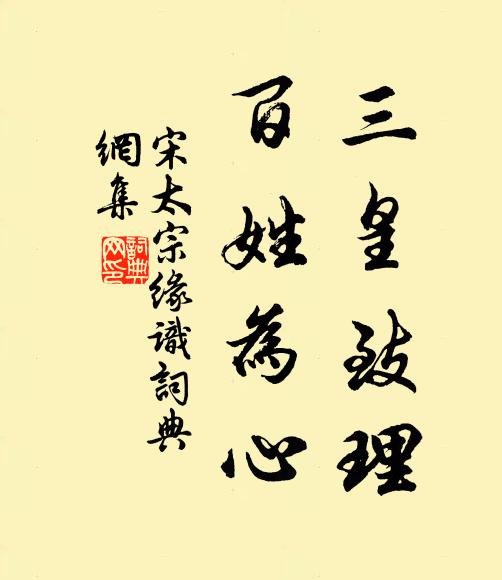 三皇致理
百姓為心
宋太宗緣識詞典
網集
詞典網印